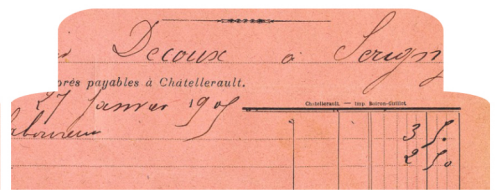 Decoux à Serigny
près payables à Châtellerault.
27 Janvier 1905
Chatellerault. — Imp
laboureur
3 5.
2 5.